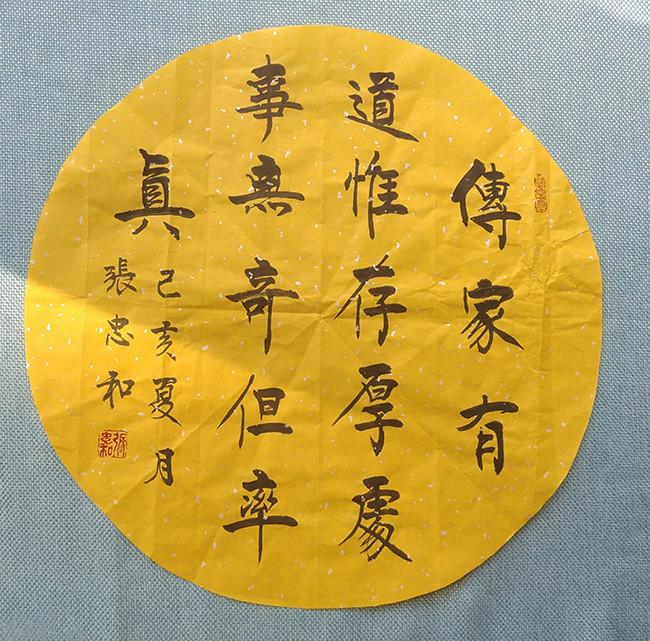 傳家有
道惟存厚處
事無奇但率
眞
己亥夏月
張忠和
張忠和